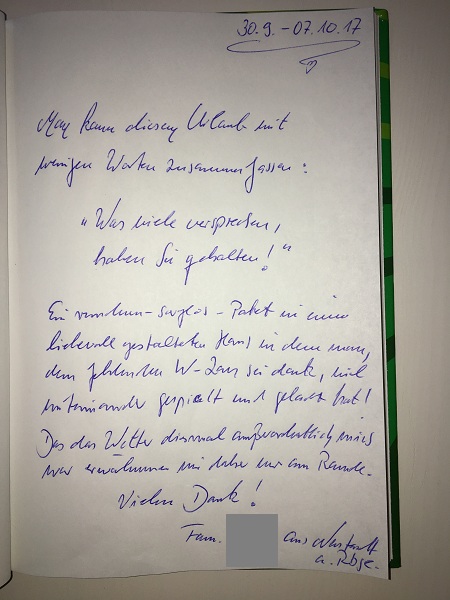 30.9. – 07.10.17
Man kann diesen Urlaub mit
wenigen Worten zusammenfassen:
„Was viele versprechen,
haben Sie gehalten!"
Ein rundum-sorglos-Paket in einem
liebevoll gestalteten Haus in dem man,
dem fehlenden W-Lan sei dank, viel
miteinander gespielt und gelacht hat!
Das das Wetter diesmal außerordentlich mies
war erwähnen wir daher nur am Rande.
Vielen Dank!
Fam. aus Neustadt
a. Rbge.